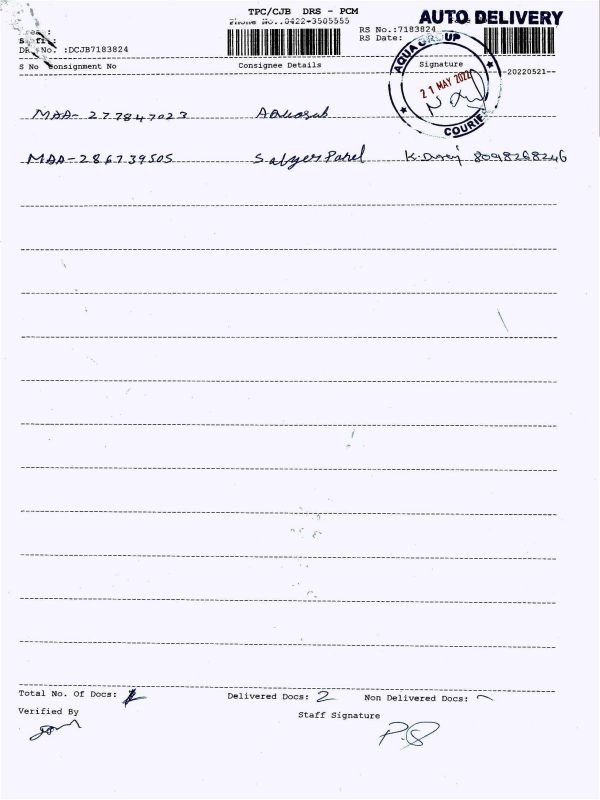 TPC/CJB DRS - PCM AUTO DELIVERY
Phone No.:0422-3505555
RS No.:7183824
RS Date:
DRS No. :DCJB7183824
S No Consignment No Consignee Details Signature
20220521
AQUA GROUP
21 MAY 2022
COURIE
MAA- 277847023
MAA-286739505 K. 8098268246
Total No. Of Docs: Delivered Docs: 2 Non Delivered Docs:
Verified By
Staff Signature
P.S